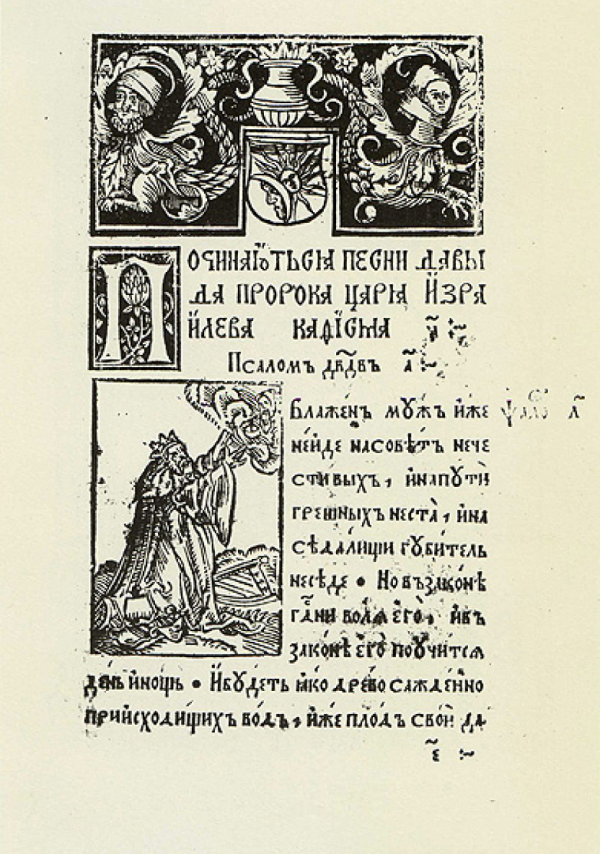 ПОЧИНАЮТЬСѦ ПЕСНИ ДАВЫ
ДА ПРОРОКА ЦАРѦ ИЗРА
ИЛЕВА КАФІСМА а҃ :~
Псаломъ дв҃двъ а҃ :~
Блажєнъ мꙋжъ ижє
нєидє насовѣтъ нєчє
стивыхъ, инапꙋти
грєшныхъ нєста, ина
сєдалищи гꙋбитєль
нєсєдє • Но въ законє
гн҃и волѧ єго, ивъ
законє єго поꙋчитсѧ
дєнь инощь • Ибꙋдєть ꙗко дрєво сажєнно
приисходищихъ водъ, ижє плодъ свои да
є҃ :~